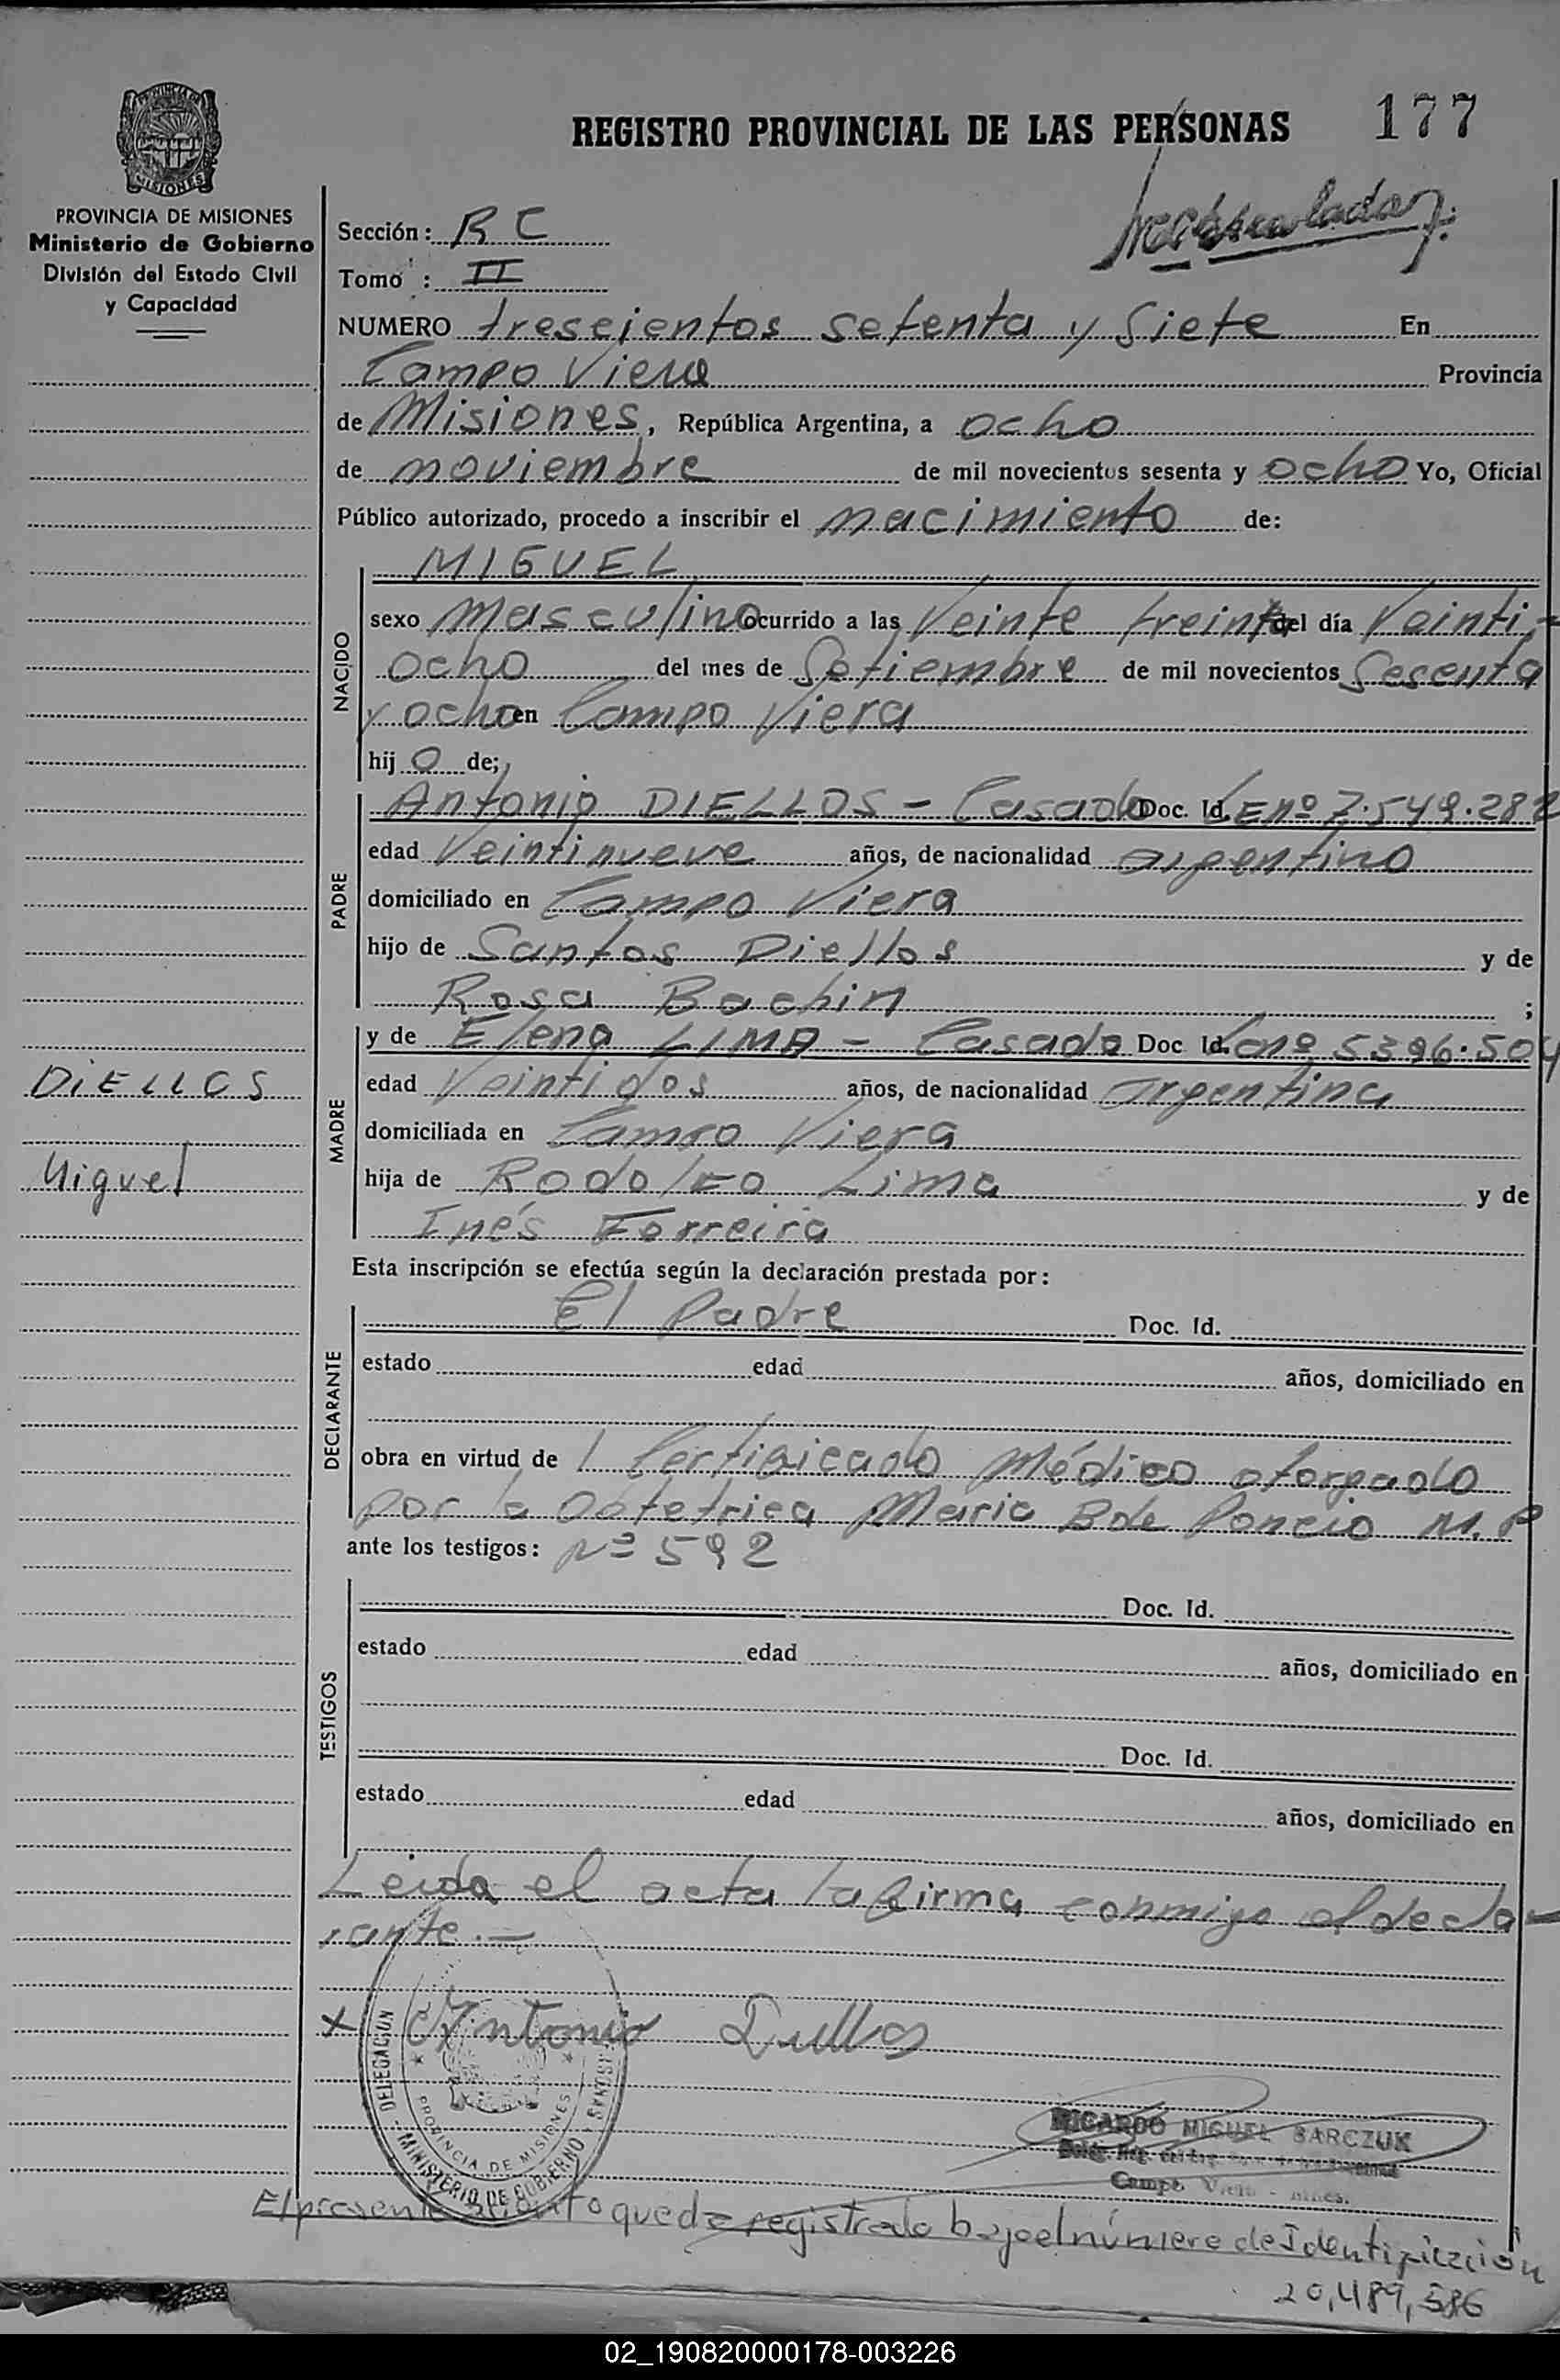 REGISTRO PROVINCIAL DE LAS PERSONAS 177
PROVINCIA DE MISIONES
Ministerio de Gobierno
División del Estado Civil
y Capacidad
Sección: R C
Tomo: II
NUMERO treseientos setenta y Siete En
Campo Viera Provincia
de Misiones, República Argentina, a ocho
de noviembre de mil novecientos sesenta y ocho Yo, Oficial
Público autorizado, procedo a inscribir el nacimiento de:
NACIDO
MIGUEL
sexo masculino ocurrido a las Veinte treinta del día Veinti-
ocho del mes de Setiembre de mil novecientos Sesenta
y ocho en Campo Viera
hij o de;
PADRE
Antonio DIELLOS - Casado Doc. Id. LE nº 7.549.282
edad Veintinueve años, de nacionalidad argentino
domiciliado en Campo Viera
hijo de Santos Diellos y de
Rosa Bachin ;
MADRE
y de Elena LIMA - Casada Doc Id. nº 5396.504
edad Veintidos años, de nacionalidad argentina
domiciliada en Campo Viera
hija de Rodolfo Lima y de
Inés Ferreira
DIELLOS
Miguel
Esta inscripción se efectúa según la declaración prestada por:
DECLARANTE
El Padre Doc. Id.
estado edad años, domiciliado en
obra en virtud de 1 Certificado Médico otorgado
por la Obtetrica Maria B de Poncio M.P
ante los testigos: Nº 592
TESTIGOS
Doc. Id.
estado edad años, domiciliado en
Doc. Id.
estado edad años, domiciliado en
Leida el acta la firma conmigo el decla-
rante.-
x Antonio Diellos
DELEGACION
MINISTERIO DE GOBIERNO
PROVINCIA DE MISIONES
RICARDO MIGUEL BARCZUK
Campo Viera - Mnes.
El presente asiento queda registrado bajo el número de Identificación
20,489,586
02_190820000178-003226